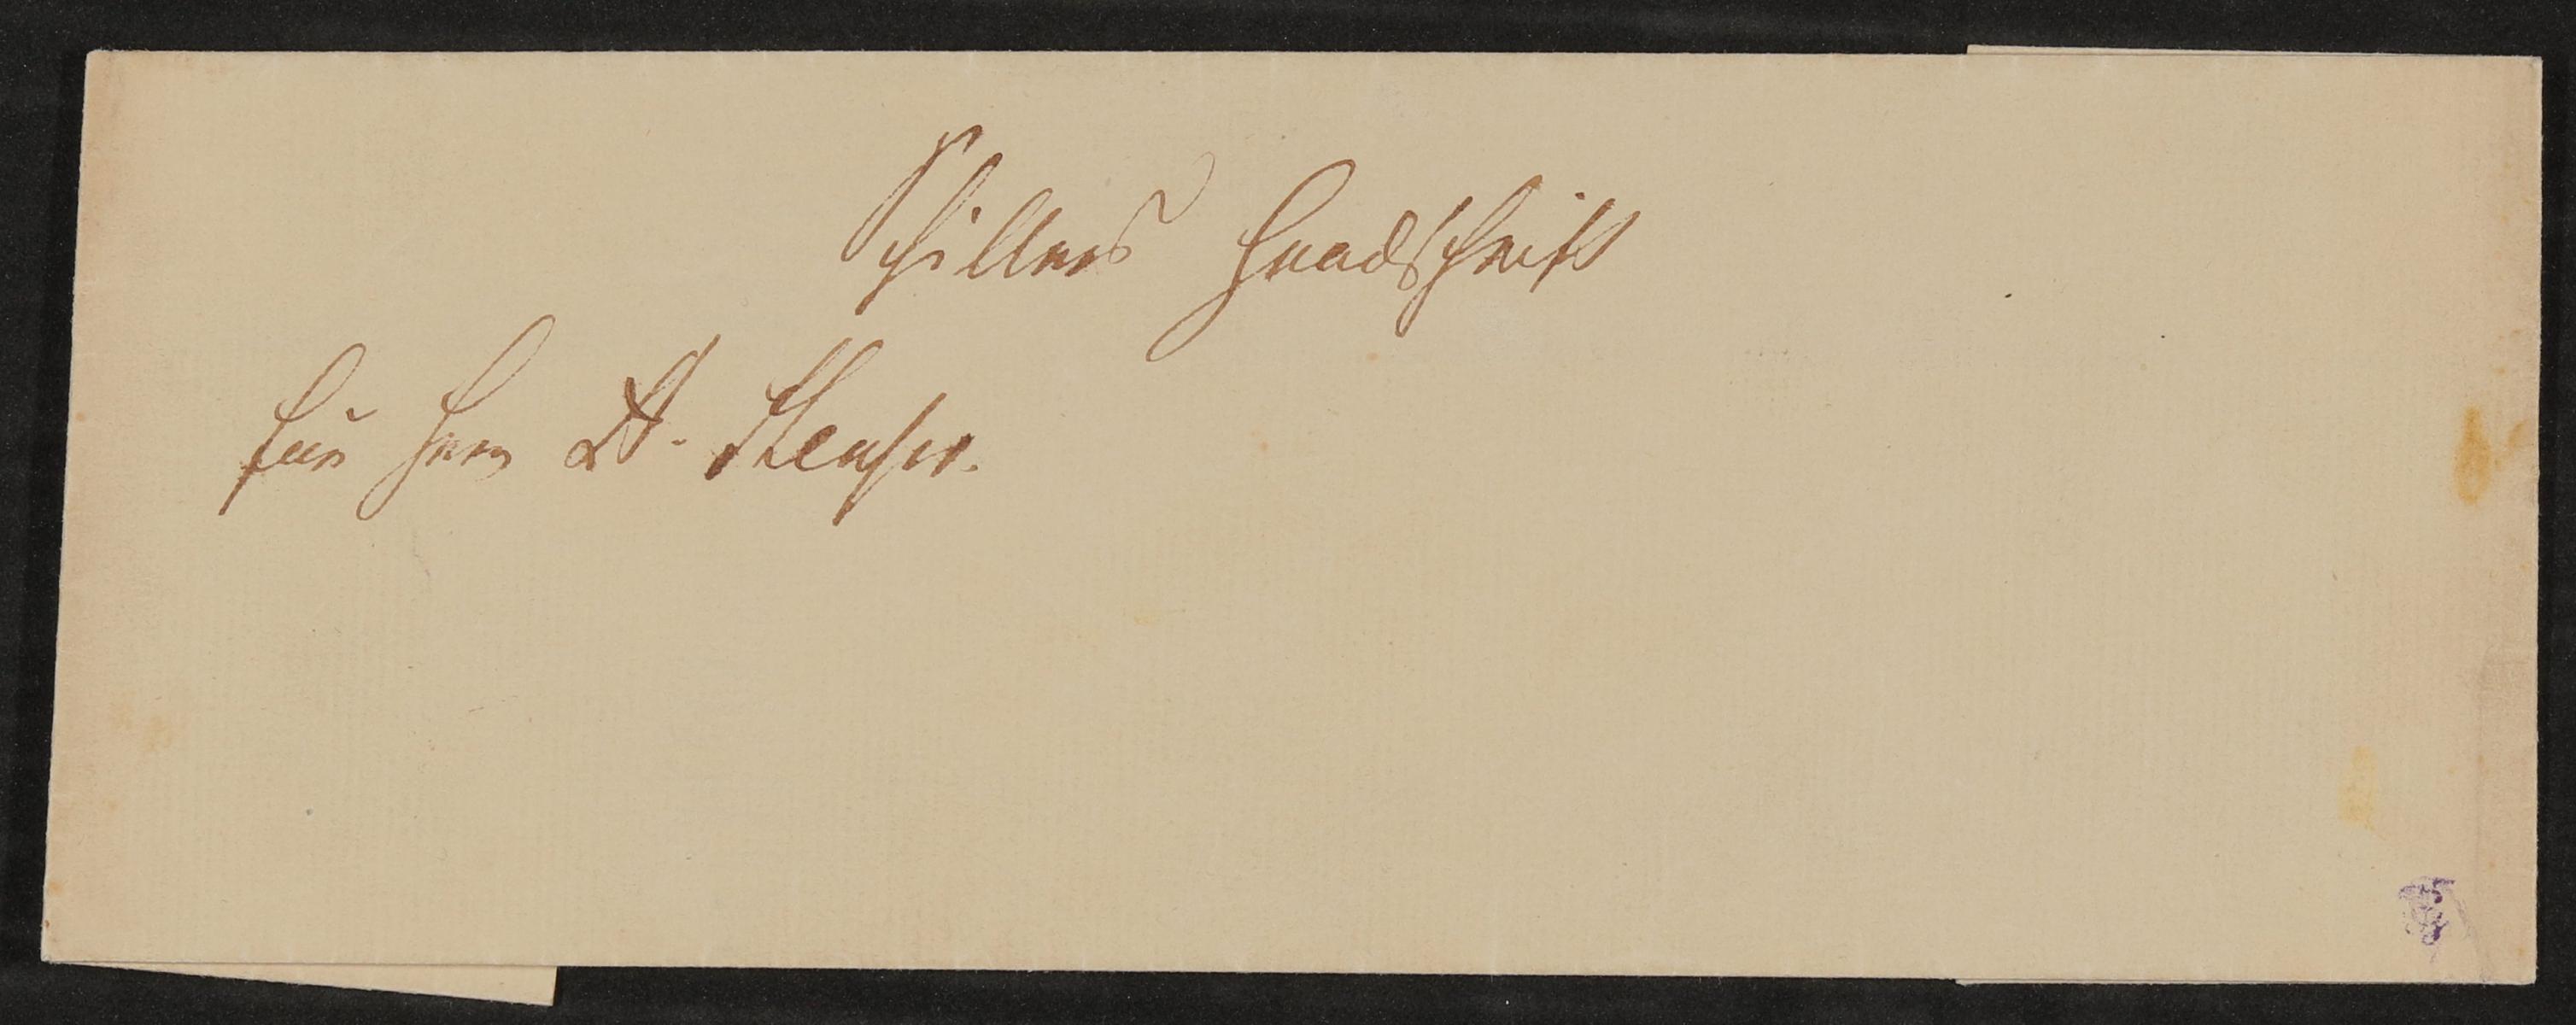 Schillers Handschrift
für Herrn Dr.